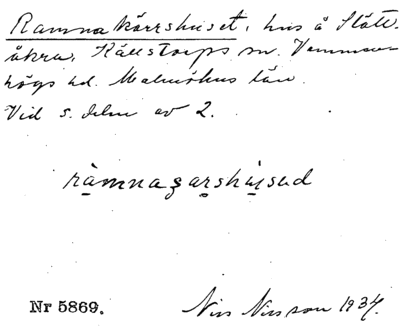 Ramnakärrshuset, hus å Slätt-
åkra, Källstorps sn. Vemmen-
högs hd. Malmöhus län.
Vid s. delen av 2.
ràmnaʒarshụsəd
Nr 5869.
Nils Nilsson 1934.